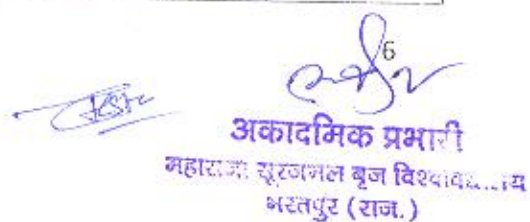 6
अकादमिक प्रभारी
महाराजा सूरजमल बृज विश्वविद्यालय
भरतपुर (राज.)